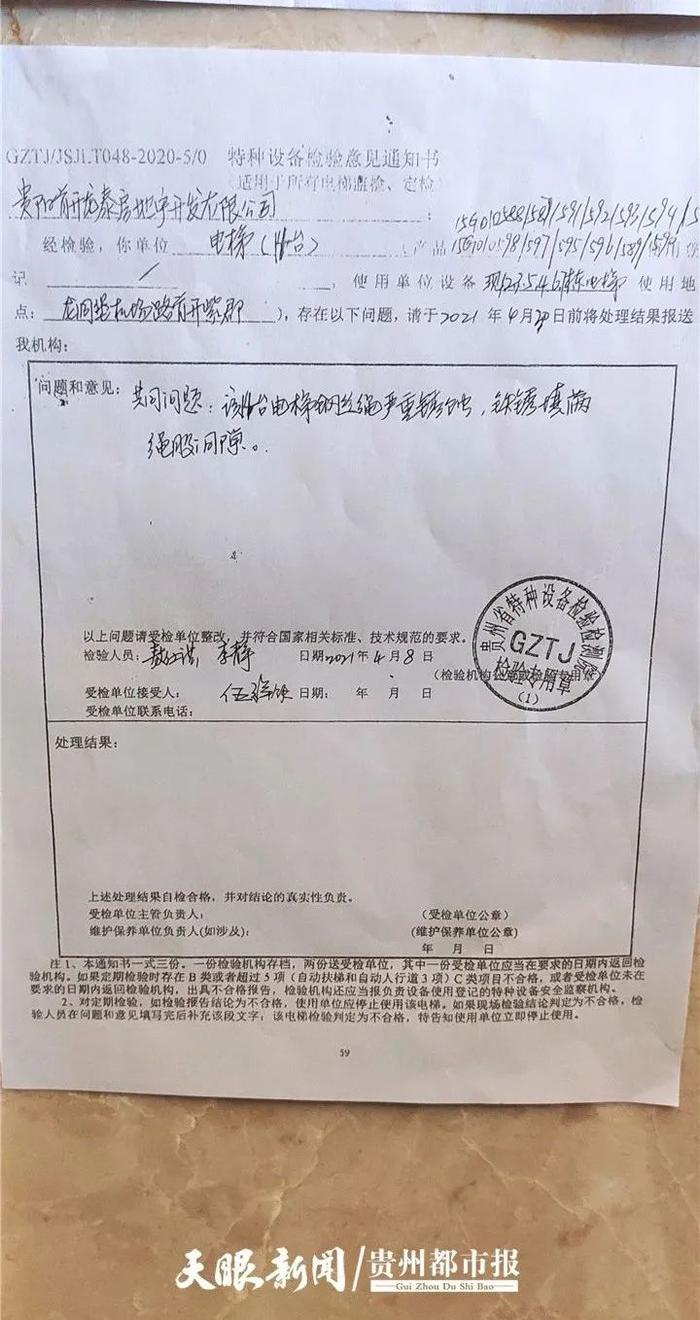 GZTJ/JSJLT048-2020-5/0 特种设备检验意见通知书
(适用于所有电梯监检、定检)
贵阳首开龙泰房地产开发有限公司:
经检验,你单位 电梯(14台) (产品
记 / ,使用单位设备 电梯 使用地
点: 龙洞堡机场路首开紫郡 ),存在以下问题,请于2021年4月 日前将处理结果报送
我机构:
问题和意见: 共同问题:该14台电梯钢丝绳严重锈蚀,铁锈填满
绳股间隙。
以上问题请受检单位整改,并符合国家相关标准、技术规范的要求。
检验人员: 日期2021年4月8日
(检验机构公章或检验专用章)
受检单位接受人: 日期: 年 月 日
受检单位联系电话:
贵州省特种设备检验检测院
GZTJ
检验专用章
(1)
处理结果:
上述处理结果自检合格,并对结论的真实性负责。
受检单位主管负责人: (受检单位公章)
维护保养单位负责人(如涉及): (维护保养单位公章)
年 月 日
注1、本通知书一式三份。一份检验机构存档,两份送受检单位,其中一份受检单位应当在要求的日期内返回检
验机构。如果定期检验时存在B类或者超过5项(自动扶梯和自动人行道3项)C类项目不合格,或者受检单位未在
要求的日期内返回检验机构,出具不合格报告,检验机构还应当报负责设备使用登记的特种设备安全监察机构。
2、对定期检验,如检验报告结论为不合格,使用单位应停止使用该电梯。如果现场检验结论判定为不合格,检
验人员在问题和意见填写完后补充该段文字:该电梯检验判定为不合格,特告知使用单位立即停止使用。
59
天眼新闻/贵州都市报
Gui Zhou Du Shi Bao